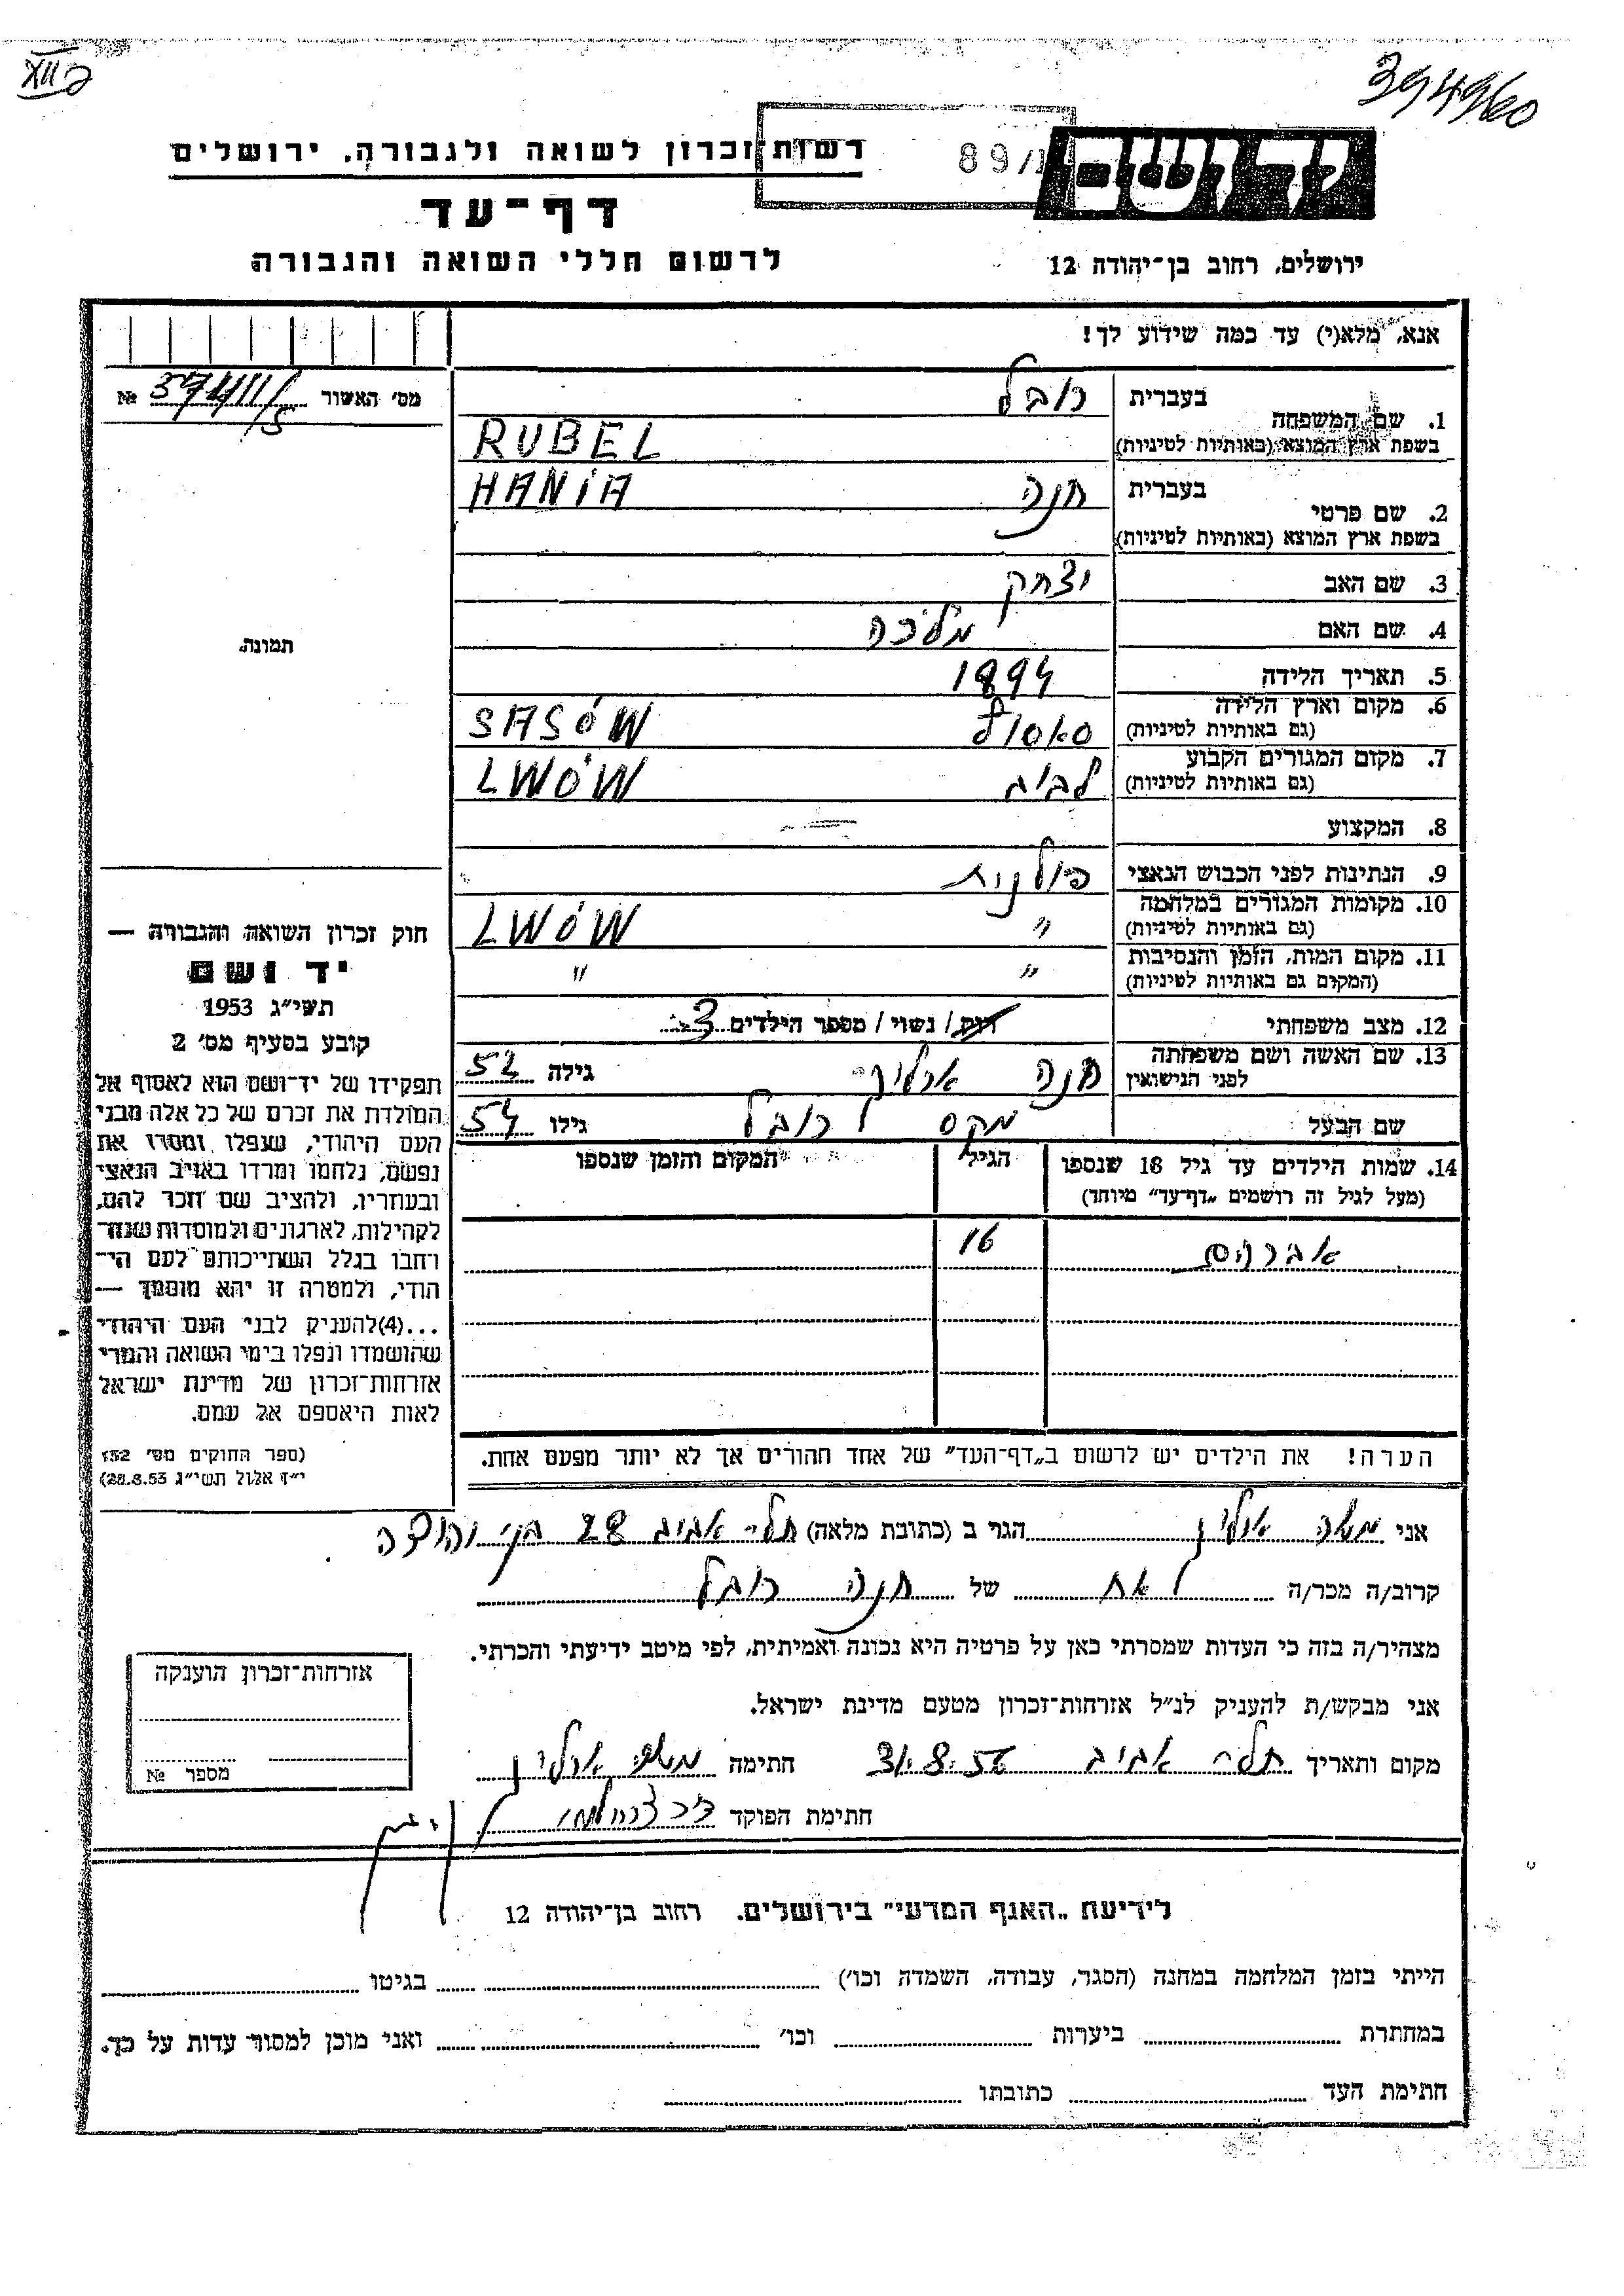 394960
89/
יד ושם
רשות-זכרון לשואה ולגבורה, ירושלים
דף-עד
ירושלים, רחוב בן-יהודה 12
לרשום חללי השואה והגבורה
אנא, מלא(י) עד כמה שידוע לך!
מס' האשור №
1. שם המשפחה
בעברית רובל
בשפת ארץ המוצא (באותיות לטיניות) RUBEL
2. שם פרטי
בעברית חנה HANIA
בשפת ארץ המוצא (באותיות לטיניות)
3. שם האב יצחק
4. שם האם מלכה
5. תאריך הלידה 1894
6. מקום וארץ הלידה
(גם באותיות לטיניות) סאסוב SASÓW
7. מקום המגורים הקבוע
(גם באותיות לטיניות) לבוב LWÓW
8. המקצוע —
9. הנתינות לפני הכבוש הנאצי פולנית
10. מקומות המגורים במלחמה
(גם באותיות לטיניות) " LWÓW
11. מקום המות, הזמן והנסיבות
(המקום גם באותיות לטיניות) " "
12. מצב משפחתי רווק / נשוי / מספר הילדים 3
13. שם האשה ושם משפחתה
לפני הנישואין חנה גילה 52
שם הבעל מקס רובל גילו 54
14. שמות הילדים עד גיל 18 שנספו
(מעל לגיל זה רושמים „דף-עד" מיוחד)
הגיל
המקום והזמן שנספו
אברהם 16
הערה! את הילדים יש לרשום ב„דף-העד" של אחד ההורים אך לא יותר מפעם אחת.
תמונה
חוק זכרון השואה והגבורה —
יד ושם
תשי"ג 1953
קובע בסעיף מס' 2
תפקידו של יד-ושם הוא לאסוף אל
המולדת את זכרם של כל אלה מבני
העם היהודי, שנפלו ומסרו את
נפשם, נלחמו ומרדו באויב הנאצי
ובעוזריו, ולהציב שם וזכר להם,
לקהילות, לארגונים ולמוסדות שנח-
רחבו בגלל השתייכותם לעם הי-
הודי, ולמטרה זו יהא מוסמך —
...(4)להעניק לבני העם היהודי
שהושמדו ונפלו בימי השואה והמרי
אזרחות-זכרון של מדינת ישראל
לאות היאספם אל עמם.
(ספר החוקים מס' 132
י"ז אלול תשי"ג 28.8.53)
אני הגר ב (כתובת מלאה) תל-אביב 28 בן יהודה
קרוב/ה מכר/ה אח של חנה רובל
מצהיר/ה בזה כי העדות שמסרתי כאן על פרטיה היא נכונה ואמיתית, לפי מיטב ידיעתי והכרתי.
אני מבקש/ת להעניק לנ"ל אזרחות-זכרון מטעם מדינת ישראל.
מקום ותאריך תל-אביב 31.8.56 חתימה
חתימת הפוקד
אזרחות-זכרון הוענקה
מספר №
לידיעת „האגף המדעי" בירושלים, רחוב בן-יהודה 12
הייתי בזמן המלחמה במחנה (הסגר, עבודה, השמדה וכו') בגיטו
במחתרת ביערות וכו' ואני מוכן למסור עדות על כך.
חתימת העד כתובתו